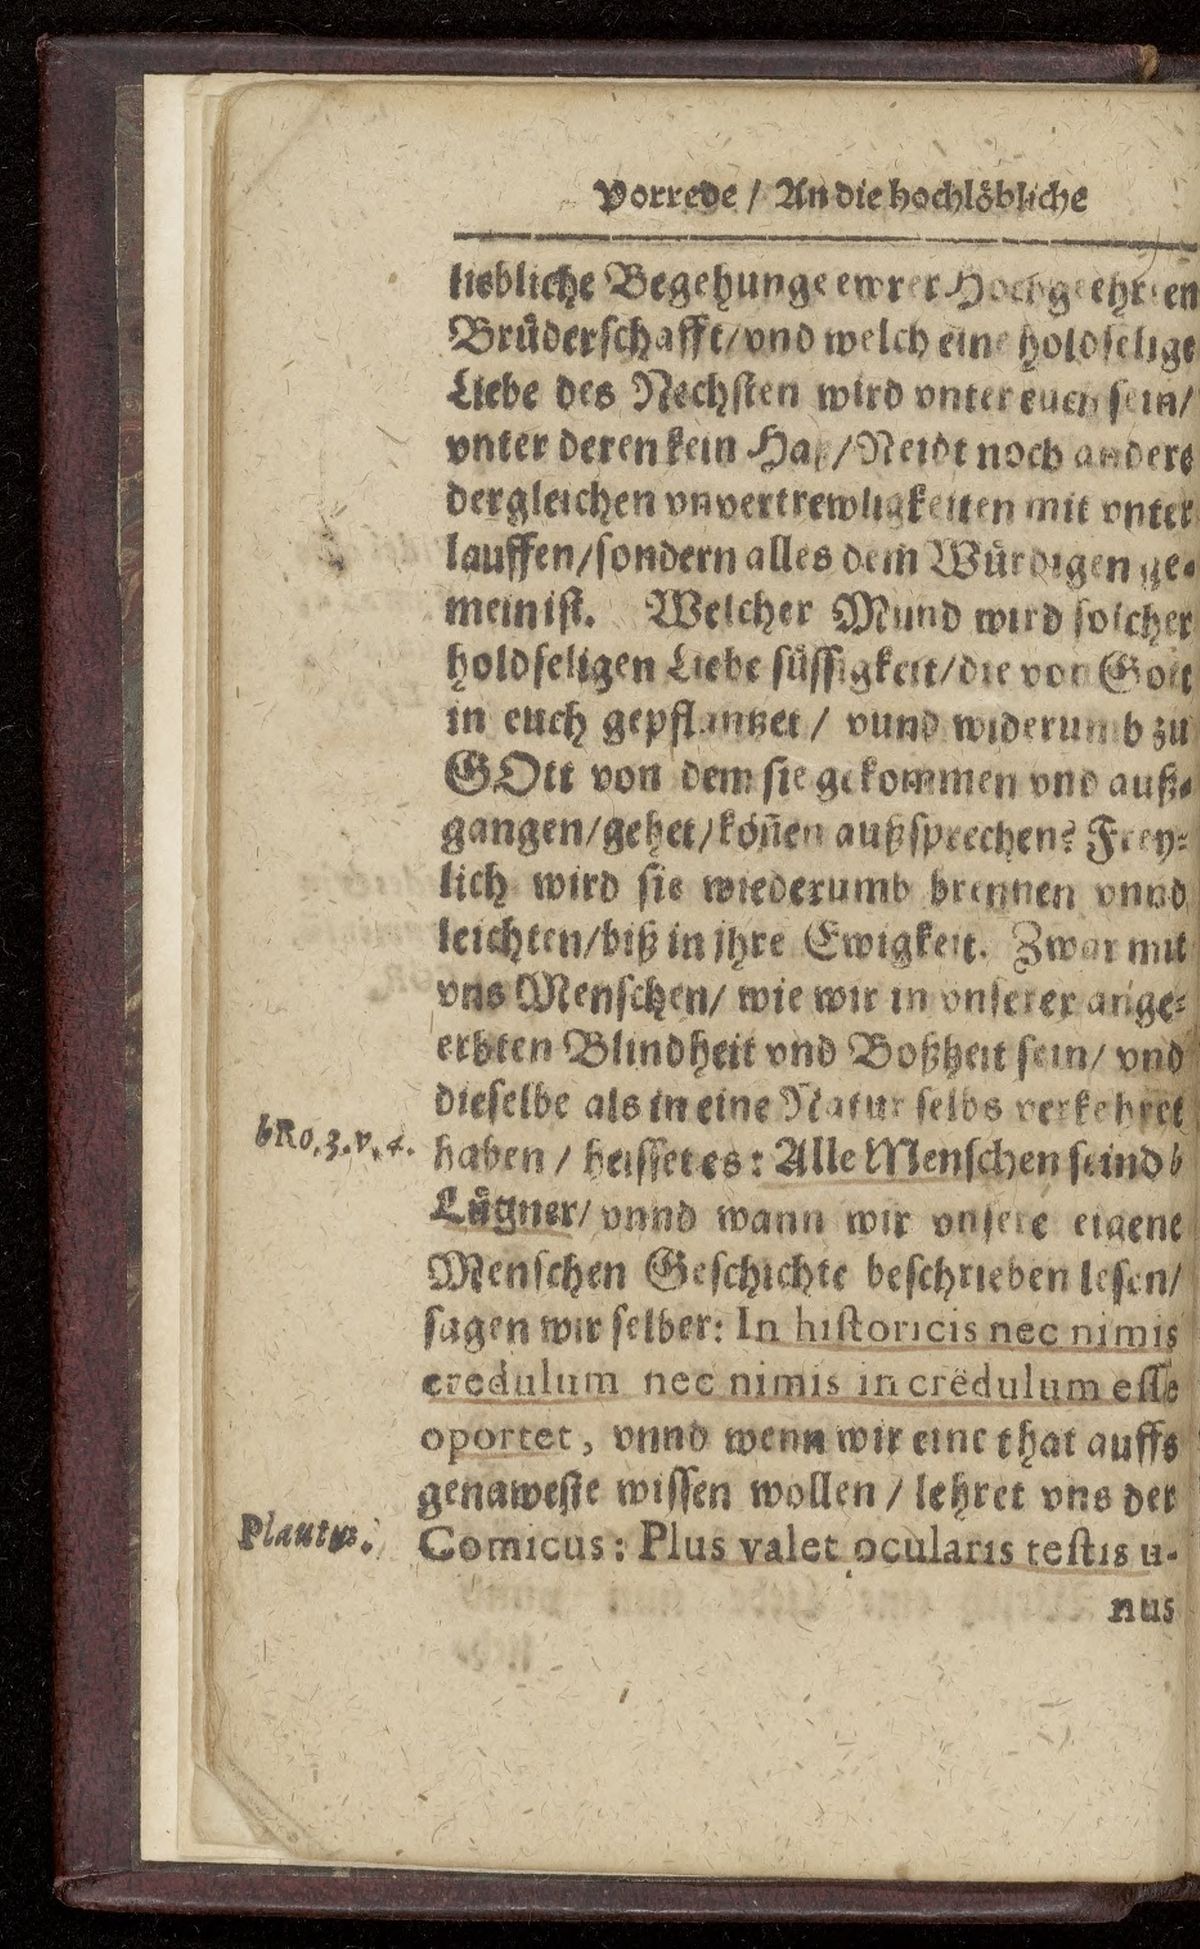 Vorrede / An die hochlöbliche
liebliche Begehunge ewrer Hochgeehrten
Brüderschafft/vnd welch eine holdselige
Liebe des Nechsten wird vnter euch sein/
vnter deren kein Haß/Neidt noch anders
dergleichen vnvertrewligkeiten mit vnter
lauffen/sondern alles dem Würdigen ge-
mein ist. Welcher Mund wird solcher
holdseligen Liebe süssigkeit/die von Gott
in euch gepflantzet / vund widerumb zu
GOtt von dem sie gekommen vnd auß-
gangen/gehet/köñen außsprechen? Frey-
lich wird sie wiederumb brennen vnnd
leichten/biß in jhre Ewigkeit. Zwar mit
vns Menschen/ wie wir in vnserer ange-
erbten Blindheit vnd Boßheit sein/ vnd
dieselbe als in eine Natur selbs verkehret
bRo.3.v.4.
haben / heisset es: Alle Menschen seind b
Lügner/ vnnd wann wir vnsere eigene
Menschen Geschichte beschrieben lesen/
sagen wir selber: In historicis nec nimis
credulum nec nimis incrëdulum esse
oportet, vnnd wenn wir eine that auffs
genaweste wissen wollen / lehret vns der
Plautus.
Comicus: Plus valet ocularis testis u-
nus